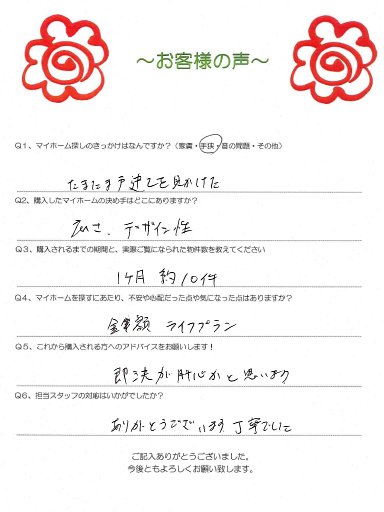 ～お客様の声～
Q1、マイホーム探しのきっかけはなんですか？（家賃・手狭・音の問題・その他）
たまたま戸建てを見かけた
Q2、購入したマイホームの決め手はどこにありますか？
広さ、デザイン性
Q3、購入されるまでの期間と、実際ご覧になられた物件数を教えてください
1ヶ月 約10件
Q4、マイホームを探すにあたり、不安や心配だった点や気になった点はありますか？
金額 ライフプラン
Q5、これから購入される方へのアドバイスをお願いします！
即決が肝心かと思います
Q6、担当スタッフの対応はいかがでしたか？
ありがとうございます 丁寧でした
ご記入ありがとうございました。
今後ともよろしくお願い致します。